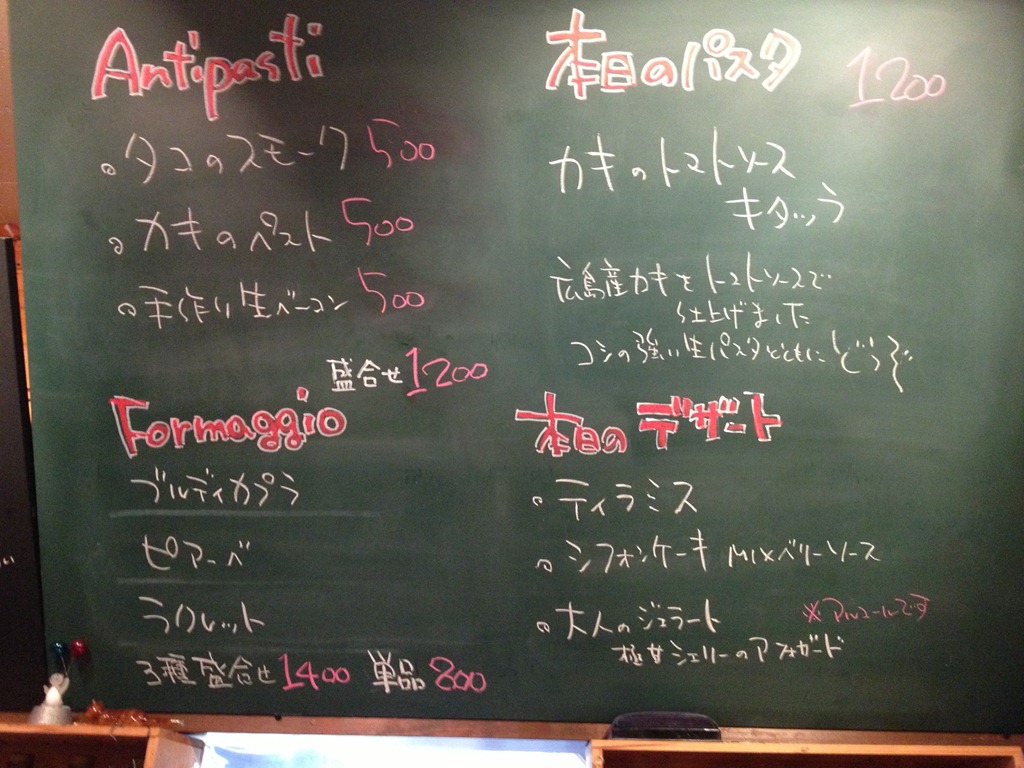 Antipasti
タコのスモーク 500
カキのペスト 500
手作り生ベーコン 500
盛合せ 1200
Formaggio
ブルディカプラ
ピアーベ
ラクレット
3種盛合せ 1400 単品 800
本日のパスタ 1200
カキのトマトソース
キタッラ
広島産カキをトマトソースで
仕上げました
コシの強い生パスタとともにどうぞ
本日のデザート
ティラミス
シフォンケーキ MIXベリーソース
大人のジェラート ※アルコールです
極甘シェリーのアフォガード